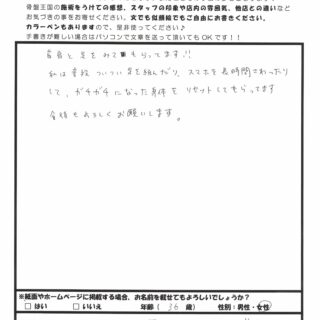 骨盤王国の施術をうけての感想、スタッフの印象や店内の雰囲気、他店との違いなど
お気づきの事をお寄せください。文でも似顔絵でもご自由にお書きください。
カラーペンもありますので、是非使ってください♪
手書きが難しい場合はパソコンで文章を送って頂いてもOKです!!
首肩と足をみてもらってます!!
私は普段ついつい足を組んだり、スマホを長時間さわったり
して、ガチガチになった身体をリセットしてもらってます
今後もよろしくお願いします。
※紙面やホームページに掲載する場合、お名前を載せてもよろしいでしょうか？
□はい □いいえ 年齢（36歳） 性別：男性・女性